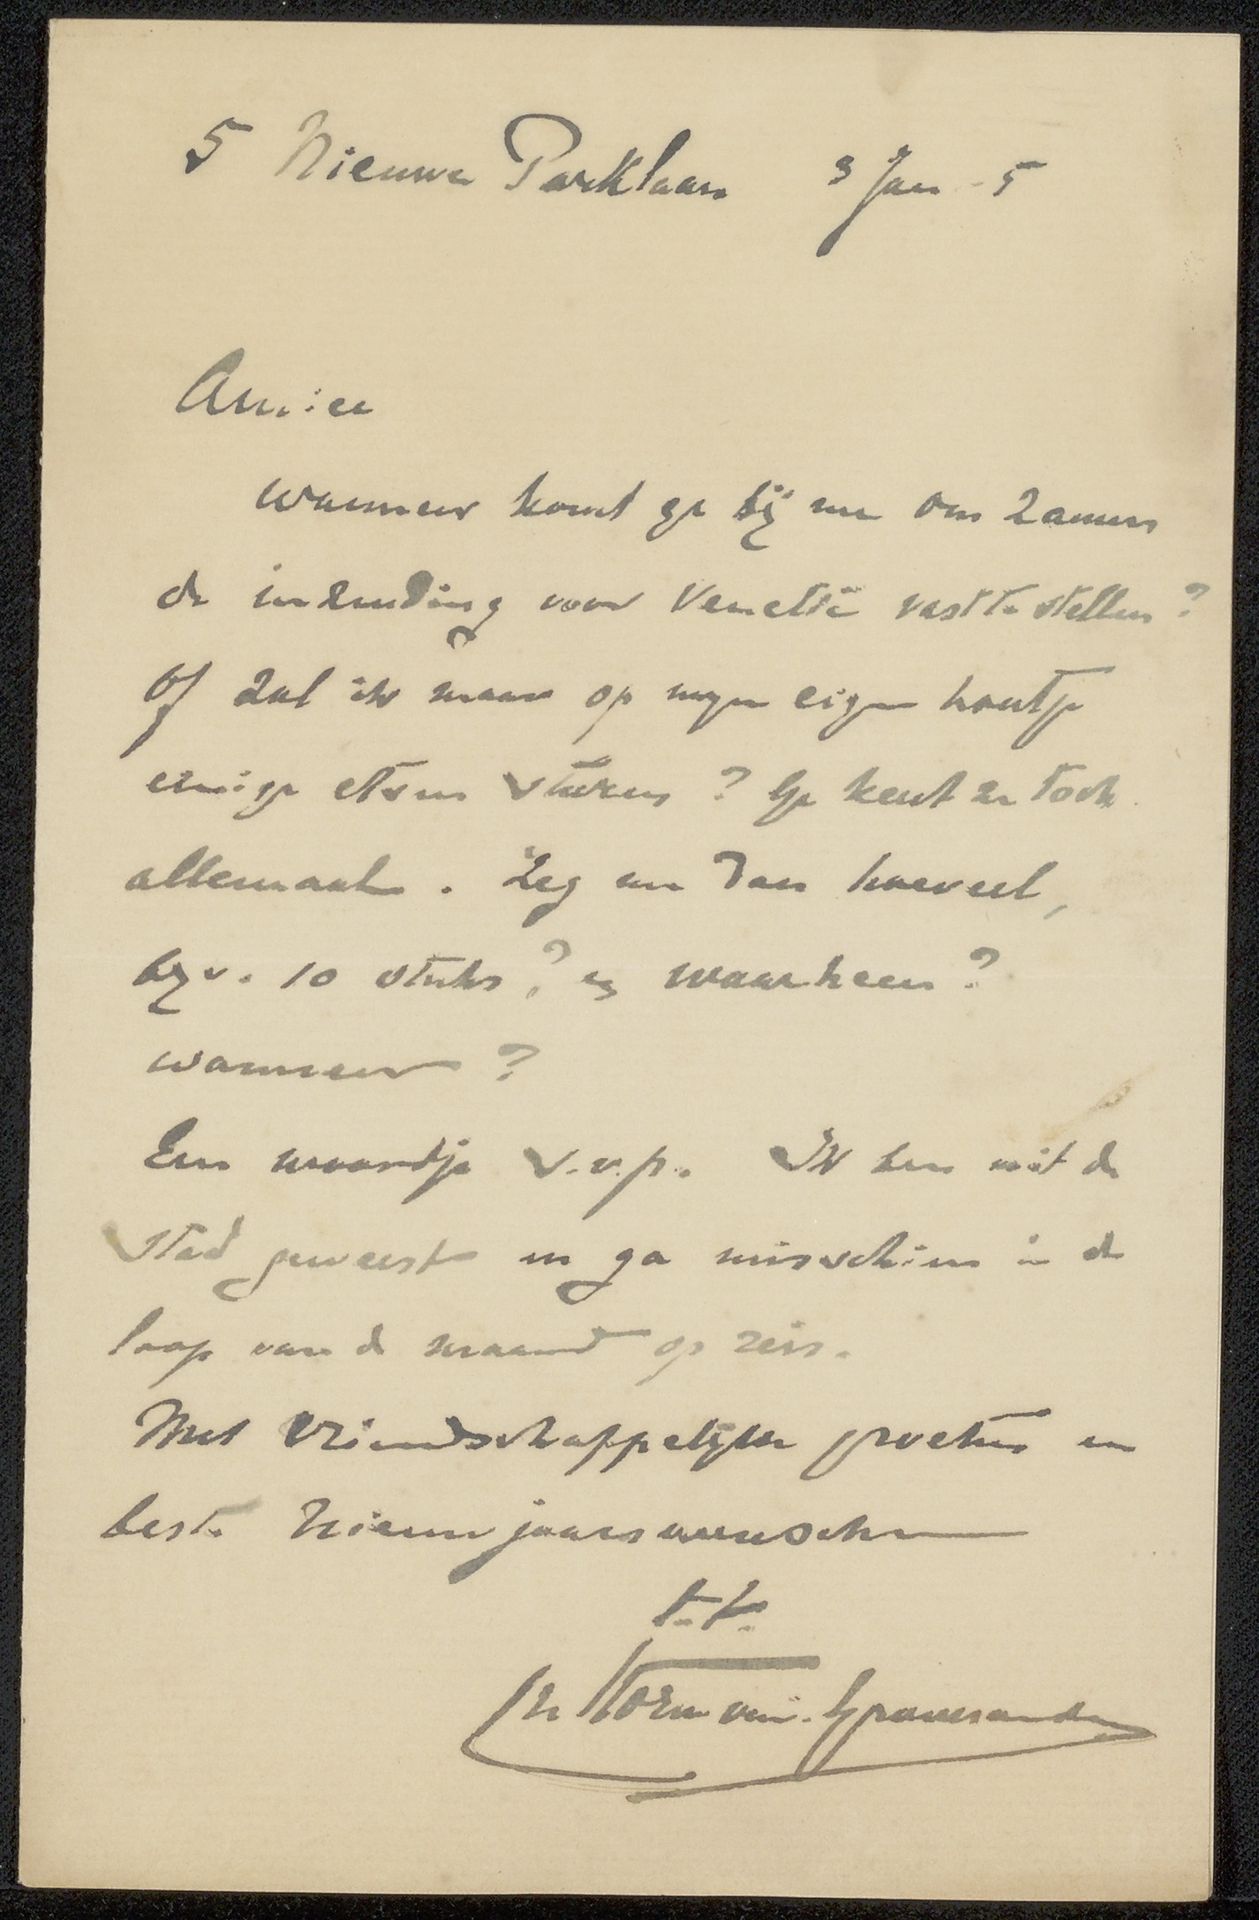 5 Nieuwe Parklaan 3 Jan - 5
Amice
wanneer komt ge bij me om zamen
de inzending voor Venetië vast te stellen?
Of zal ik maar op mijn eigen houtje
eenige etsen sturen? Ge kent ze toch
allemaal. Zeg me dan hoeveel,
bijv. 10 stuks? en waarheen?
wanneer?
Een woordje s.v.p. Ik ben uit de
stad geweest en ga misschien in de
loop van de maand op reis.
Met vriendschappelijke groeten en
beste nieuwjaarswenschen
t.t.
Ch Storm van 's Gravesande